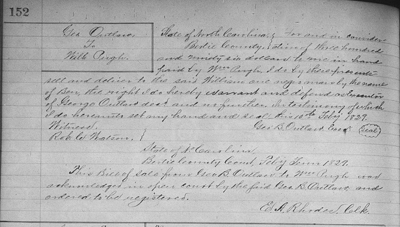 152
Geo Outlaw
To
Will Pugh
State of North Carolina } For and in consider
Bertie County } ation of three hundred
and ninety six dollars to me in hand
paid by Wm Pugh I do by these presents
sell and deliver to the said William one negro man by the name
of Ben, the right I do hereby warrant and defend as Executor
of George Outlaw decd and no further In testimony of which
I do hereunto set my hand and seal this 15th Feby 1827.
Witness Geo B. Outlaw Exr (Seal)
Rob. C. Watson
State of N Carolina
Bertie County Court Feby Term 1827.
This Bill of sale from Geo B. Outlaw to Wm Pugh was
acknowledged in open court by the said Geo B Outlaw and
ordered to be registered.
E. A. Rhodes, Clk.